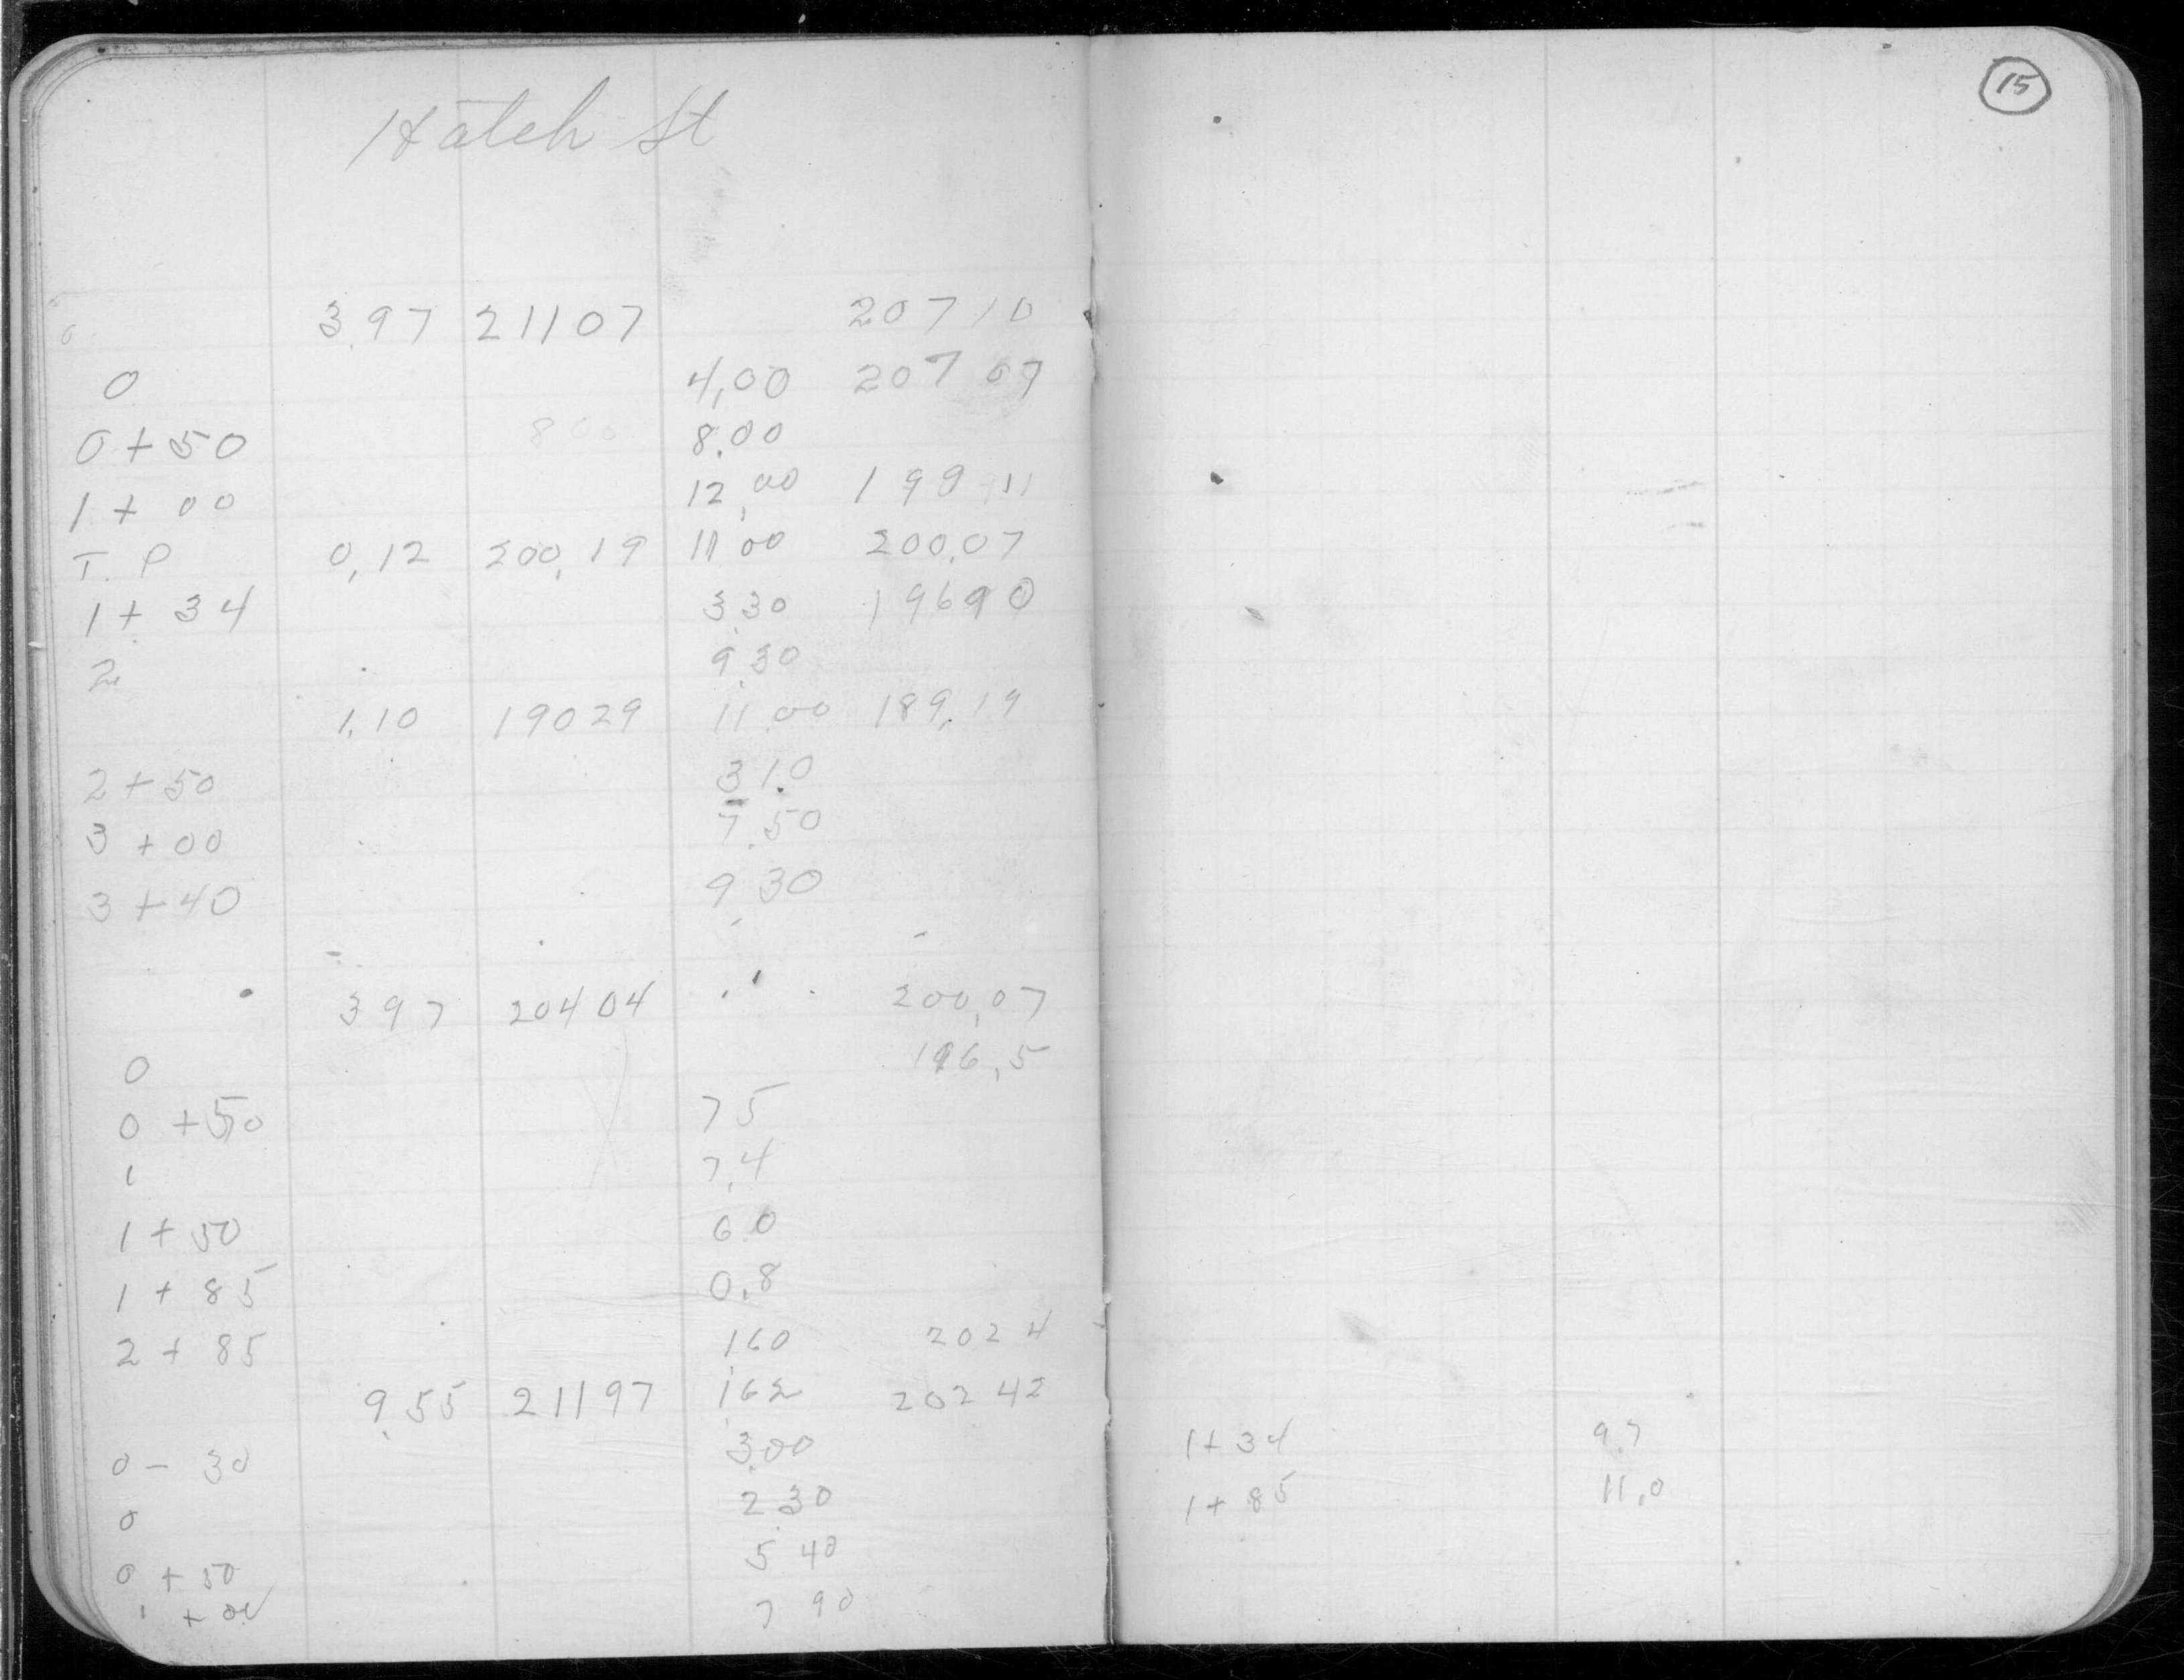 Hatch St
15
3.97 21107 207 10
0 4,00 207 07
0+50 8.00
1+00 12,00 199 11
T. P 0,12 200,19 11 00 200,07
1+34 3.30 19690
2 9.30
1.10 19029 11.00 189.19
2+50 31.0
3+00 7.50
3+40 9.30
3 97 204 04 200,07
0 196,5
0+50 75
1 7.4
1+50 60
1+85 0.8
2+85 160 202 4
9.55 21197 162 202 42
0-30 3.00
0 2.30
0+50 5 40
1+00 7 90
1+34 9.7
1+85 11.0